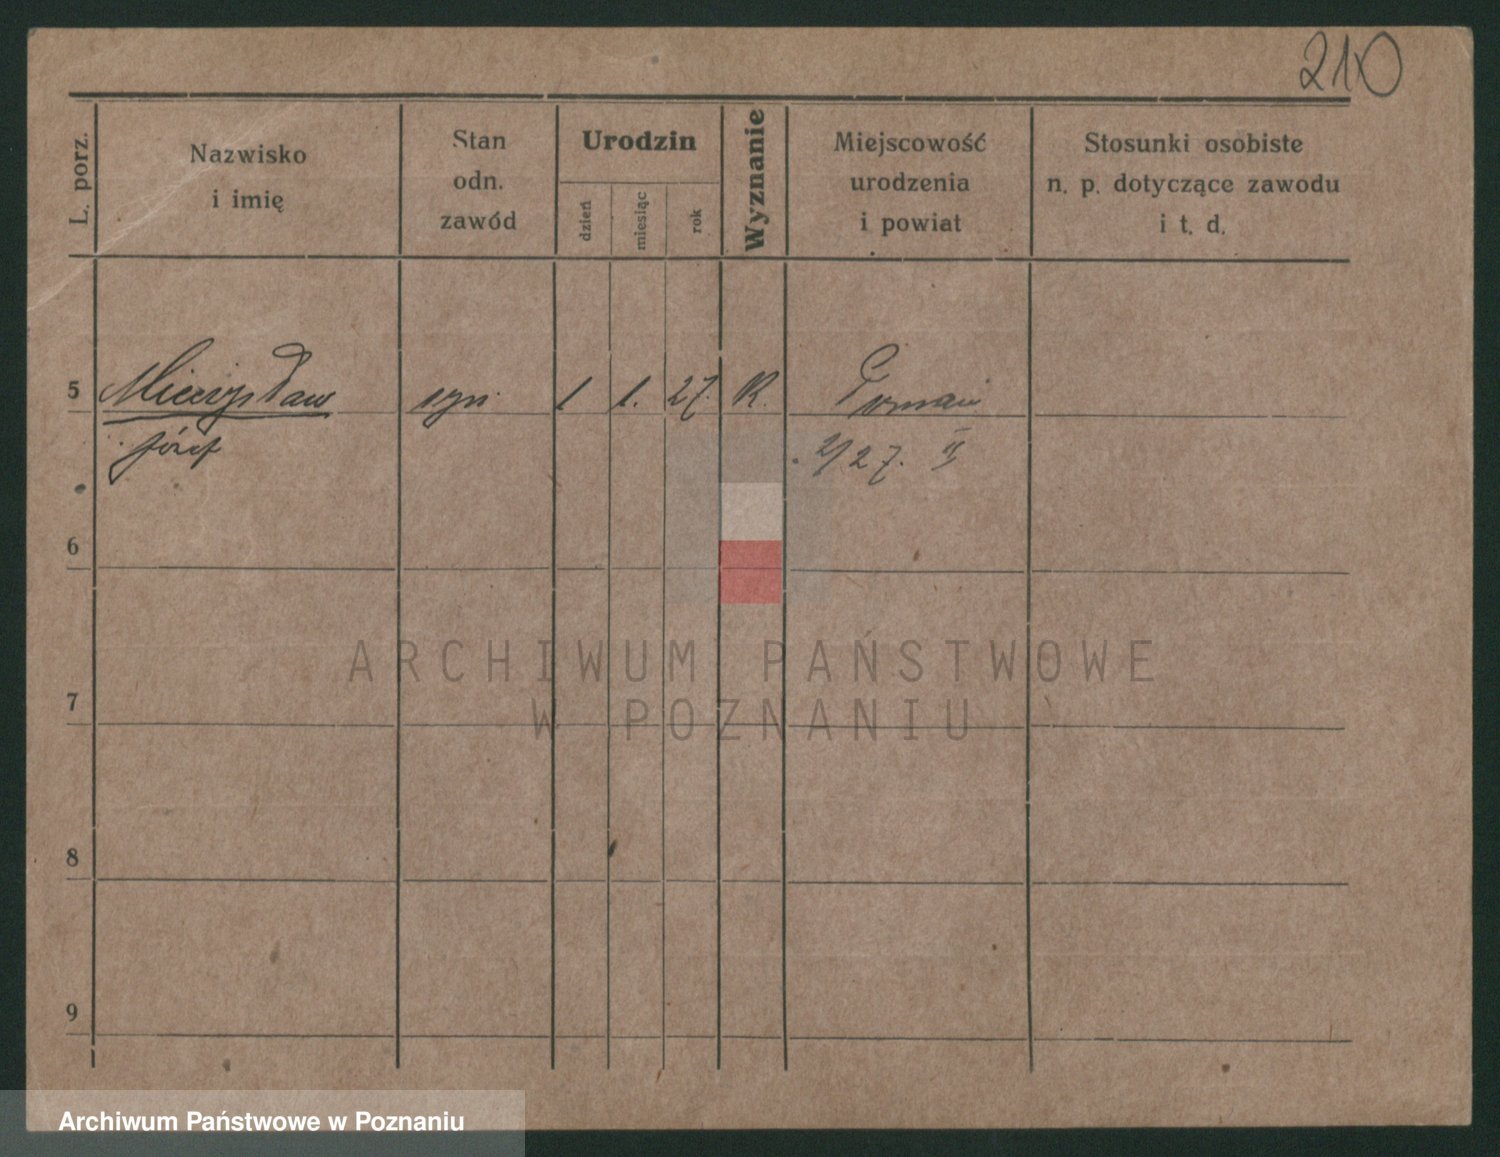 210
L. porz.
Nazwisko
i imię
Stan
odn.
zawód
Urodzin
dzień
miesiąc
rok
Wyznanie
Miejscowość
urodzenia
i powiat
Stosunki osobiste
n. p. dotyczące zawodu
i t. d.
5 Mieczysław syn 1 1. 27. R. Poznań
Józef 2/27. II
6
7
8
9
ARCHIWUM PAŃSTWOWE
W POZNANIU
Archiwum Państwowe w Poznaniu